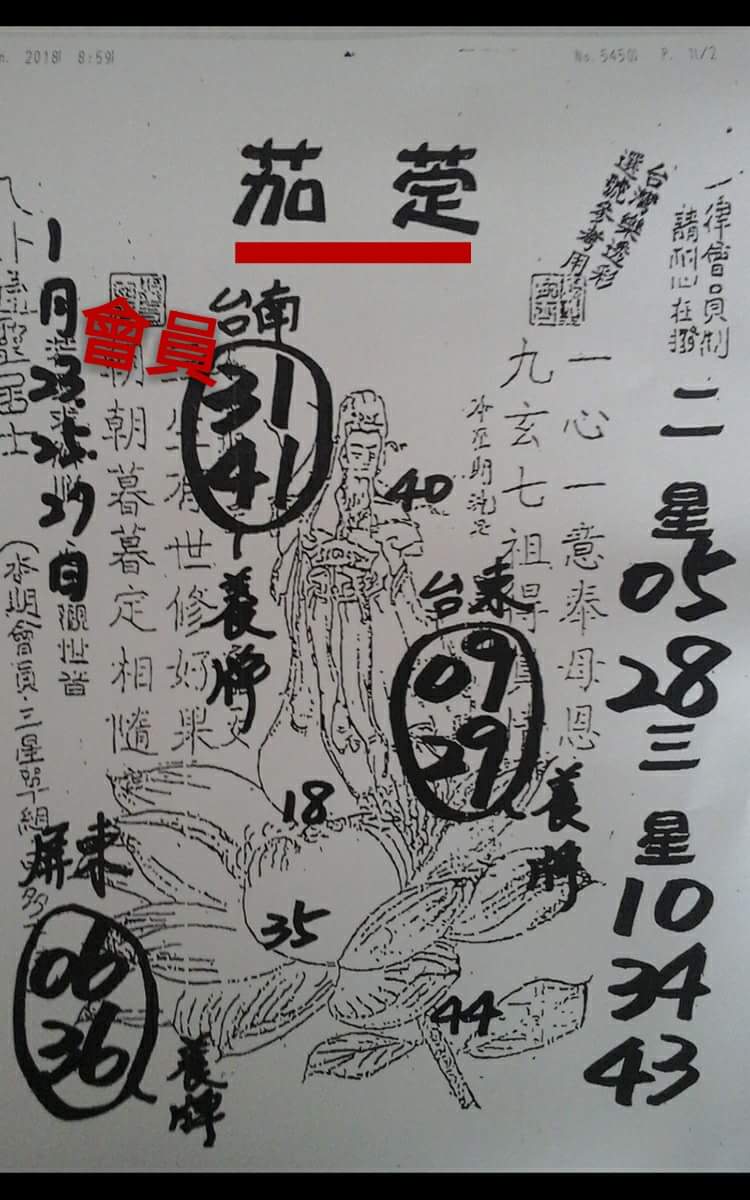 2018 8:59
No.5450 P. 11/2
茄萣
台灣樂透彩
選號參考用
一律會員制
請耐心在撥
二星
05
28
三星
10
34
43
一心一意奉母恩
九玄七祖得
台南
31
41
養牌
40
台東
09
29
養牌
會員
世修好果
朝朝暮暮定相隨
1月23.25.27日
觀世音
(本期會員.三星單組
18
35
44
屏東
06
36
養牌